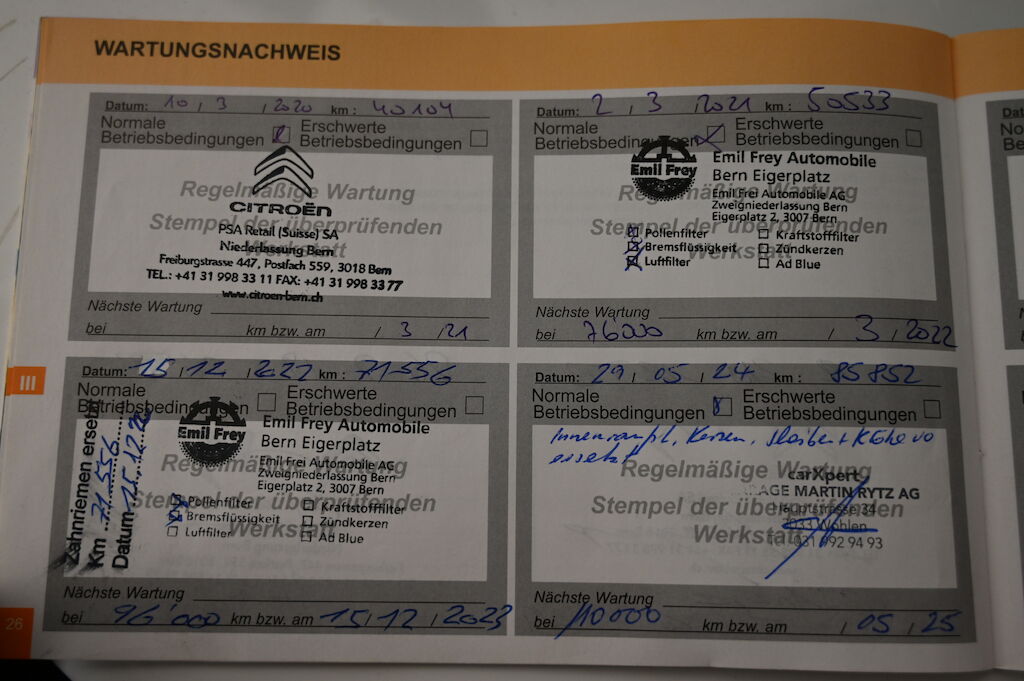 WARTUNGSNACHWEIS
Datum: 10 / 3 / 2020 km : 40104
Normale
Betriebsbedingungen
Erschwerte
Betriebsbedingungen
Regelmäßige Wartung
Stempel der überprüfenden
Werkstatt
CITROËN
PSA Retail (Suisse) SA
Niederlassung Bern
Freiburgstrasse 447, Postfach 559, 3018 Bern
TEL.: +41 31 998 33 11 FAX: +41 31 998 33 77
www.citroen-bern.ch
Nächste Wartung
bei km bzw. am / 3 / 21
Datum: 2 / 3 / 2021 km : 50533
Normale
Betriebsbedingungen
Erschwerte
Betriebsbedingungen
Regelmäßige Wartung
Stempel der überprüfenden
Werkstatt
Emil Frey
Emil Frey Automobile
Bern Eigerplatz
Emil Frei Automobile AG
Zweigniederlassung Bern
Eigerplatz 2, 3007 Bern
Pollenfilter Kraftstofffilter
Bremsflüssigkeit Zündkerzen
Luftfilter Ad Blue
Nächste Wartung
bei 76'000 km bzw. am / 3 / 2022
III
Datum: 15 / 12 / 2022 km : 71556
Normale
Betriebsbedingungen
Erschwerte
Betriebsbedingungen
Regelmäßige Wartung
Stempel der überprüfenden
Werkstatt
Zahnriemen ersetzt
Km 71 556
Datum 15.12.22
Emil Frey
Emil Frey Automobile
Bern Eigerplatz
Emil Frei Automobile AG
Zweigniederlassung Bern
Eigerplatz 2, 3007 Bern
Pollenfilter Kraftstofffilter
Bremsflüssigkeit Zündkerzen
Luftfilter Ad Blue
Nächste Wartung
bei 96'000 km bzw. am 15 / 12 / 2023
Datum: 29 / 05 / 24 km : 85852
Normale
Betriebsbedingungen
Erschwerte
Betriebsbedingungen
Kerzen,
ersetzt
Regelmäßige Wartung
Stempel der überprüfenden
Werkstatt
carXpert
MARTIN RYTZ AG
Hauptstrasse 34
3033 Wohlen
031 992 94 93
Nächste Wartung
bei km bzw. am / 05 / 25
26